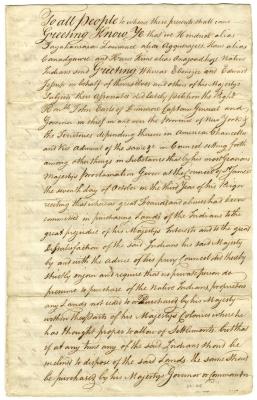 To all People to whom these presents shall come
Greeting Know Ye that we Hendrick alias
Tayahansara Lourance alias Agguirageas Hans alias
Canadagaure and Hans Krine alias Anejeeahhes Native
Indians send Greeting Whereas Ebenezer and Edward
Jessup in behalf of themselves and others of his Majestys
Subjects there Associates did lately petition the Right
Honble John Earle of Dunmore Captain General and
Governor in chief in and over the Province of New York &
the Territories depending thereon in America Chancellor
and Vice Admiral of the same &c in Council setting forth
among other things in Substance that by his most gracious
Majestys proclamation Given at the Court of St James's
the seventh day of October in the third Year of his Reign
reciting that whereas great Frauds and abuses had been
committed in purchasing Lands of the Indians to the
great prejudice of his Majestys Interests and to the great
Dissatisfaction of the said Indians his said Majesty
by and with the advice of his privy Council did thereby
strictly enjoin and require that no private person do
presume to purchase of the Native Indians proprietors
any Lands not ceded to or Purchased by his Majesty
within those parts of his Majestys Colonies where he
has thought proper to allow of Settlements but that
if at any time any of the said Indians should be
inclined to dispose of the said Lands the same should
be purchased by his Majestys Governor or Commander